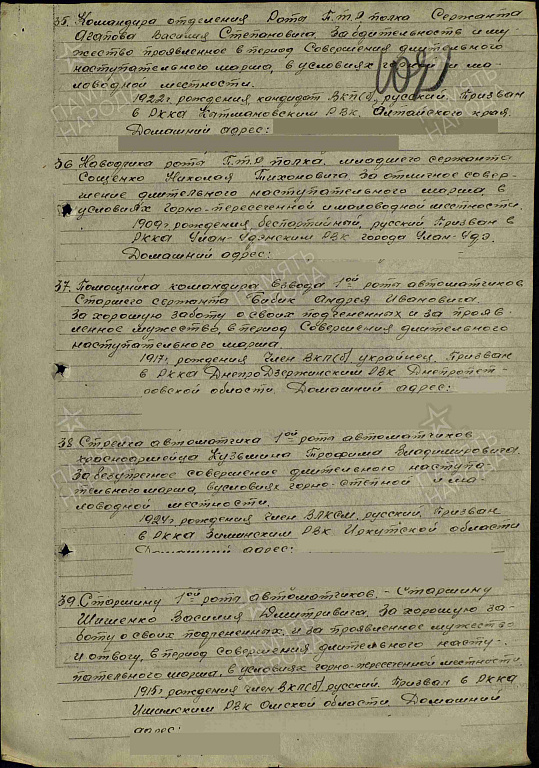 35. Командира отделения Рота П.Т.Р полка Сержанта
Агапова Василия Степановича. За бдительность и му-
жество проявленное в период Совершения длительного
наступательного марша, в условиях горной и ма-
ловодной местности.
1922г. рождения, кандидат ВКП(б), русский. Призван
в РККА РВК, Алтайского края.
Домашний адрес:
36 Наводчика роты П.Т.Р полка, младшего сержанта
Сощенко Николая Тихоновича. За отличное совер-
шение длительного наступательного марша, в
условиях горно-пересеченной и маловодной местности.
1909г. рождения, беспартийный, русский Призван в
РККА Улан-Удэнским РВК города Улан-Удэ.
Домашний адрес:
37. Помощника командира взвода 1ой роты автоматчиков
Старшего сержанта Бибик Андрея Ивановича.
За хорошую заботу о своих подчененных и за прояв-
ленное мужество, в период Совершения длительного
наступательного марша
1917г. рождения член ВКП(б) украинец, Призван
в РККА ДнепроДзержинским РВК Днепропет-
ровской области. Домашний адрес:
38 Стрелка автоматчика 1ой роты автоматчиков
красноармейца Кузьмина Трофима Владимировича
За безупречное совершение длительного наступа-
тельного марша, в условиях горно-степной и ма-
ловодной местности.
1924г. рождения член ВЛКСМ, русский, Призван
в РККА Зиминским РВК Иркутской области
Домашний адрес:
39. Старшину 1ой роты автоматчиков. - Старшину
Шишенко Василия Дмитривича. За хорошую за-
боту о своих подчененных, и за проявленное мужество
и отвагу, в период совершения длительного насту-
пательного марша, в условиях горно-пересеченной местности.
1915г. рождения член ВКП(б), русский. Призван в РККА
Ишимским РВК Омской области. Домашний
адрес:
ПАМЯТЬ
НАРОДА